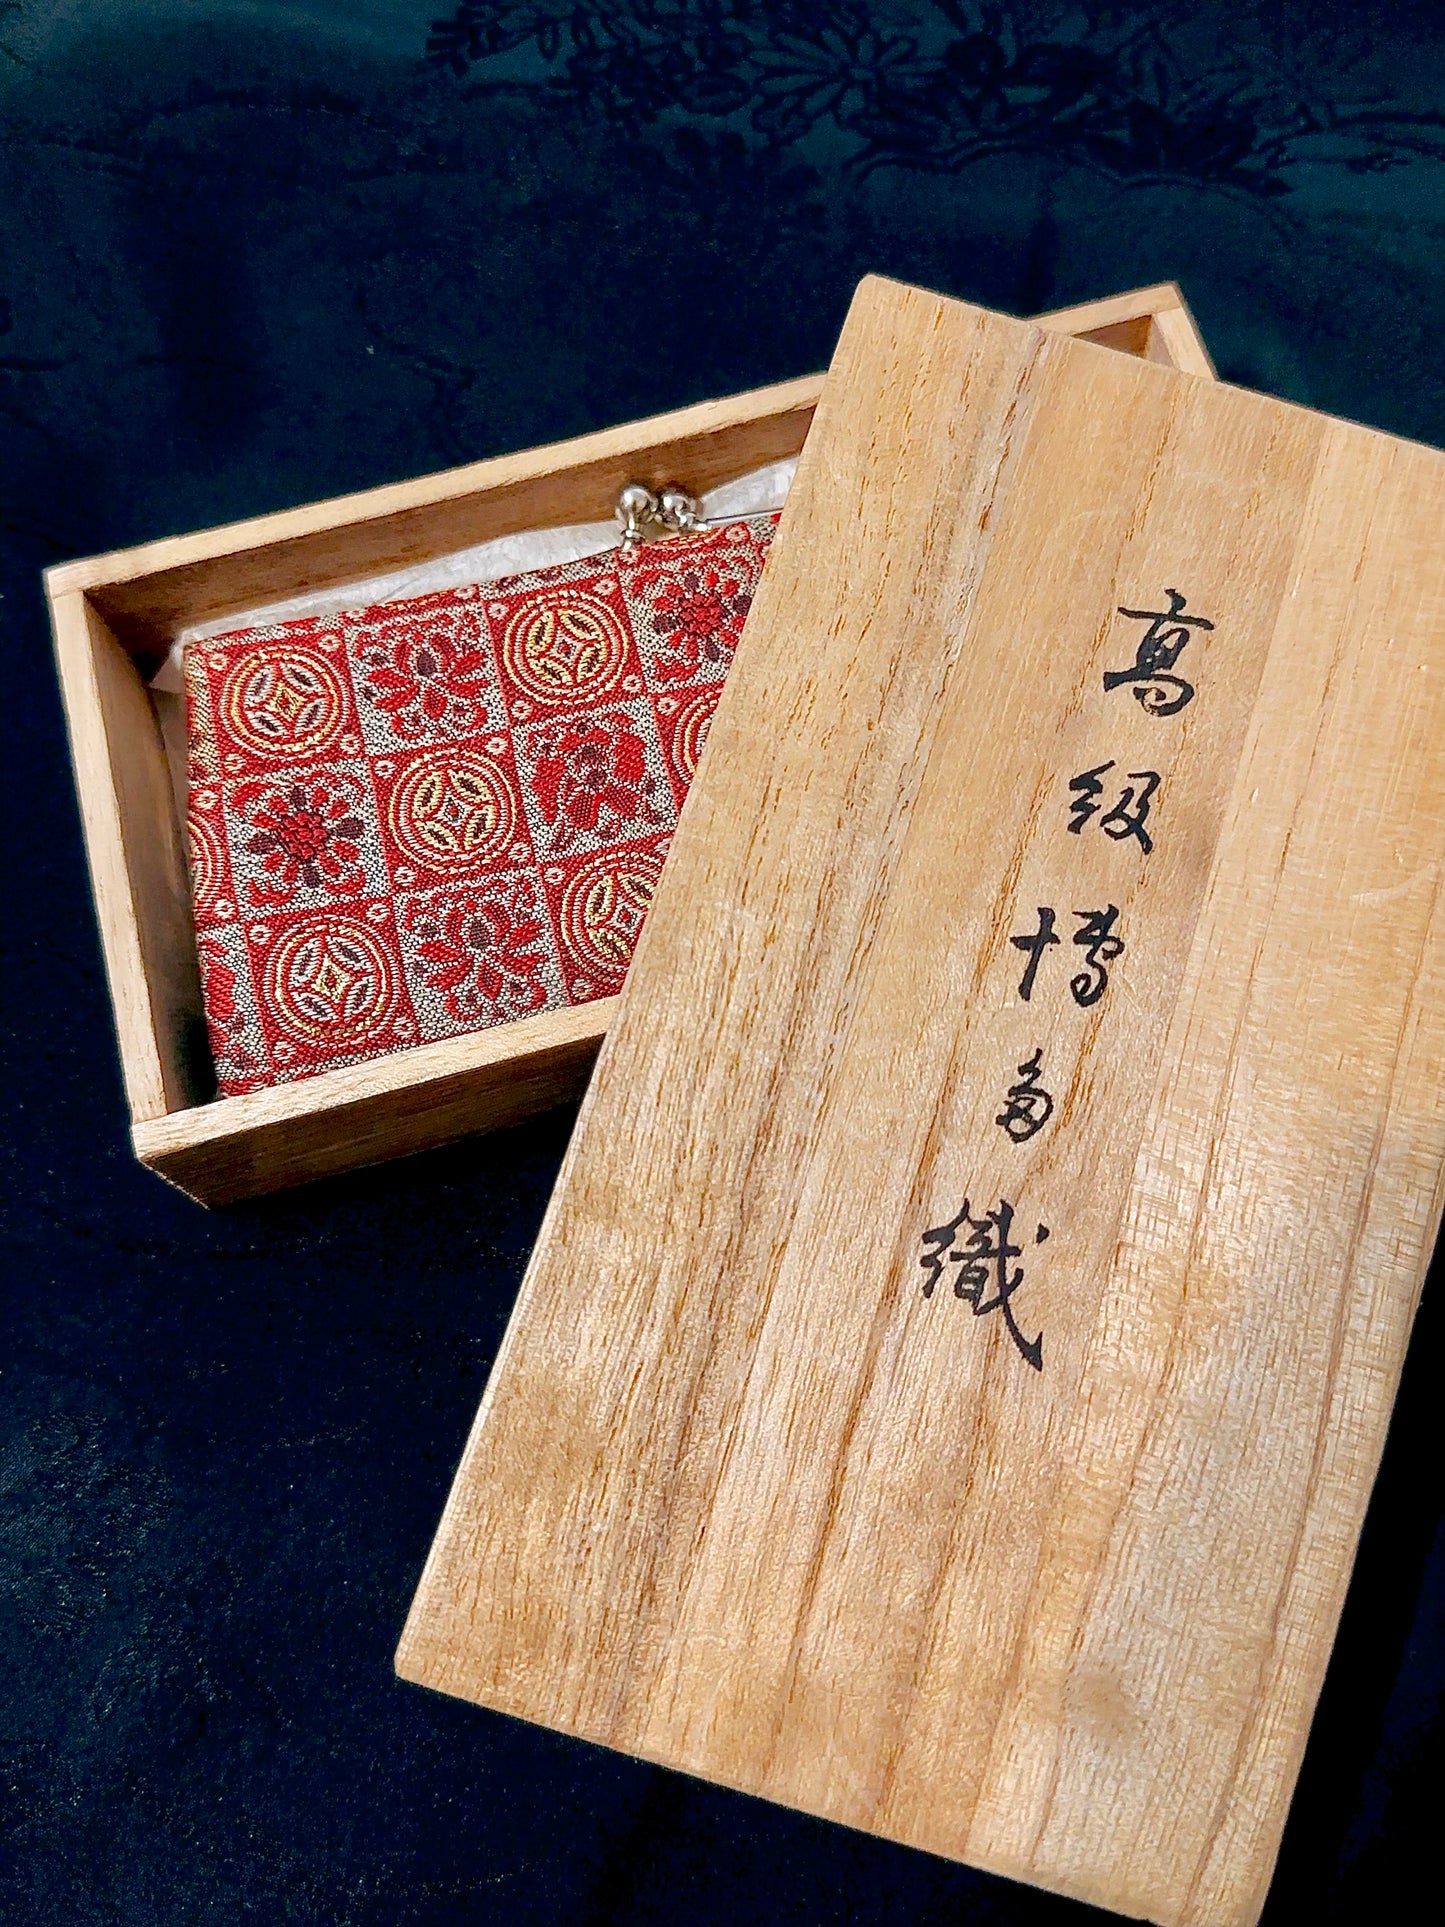 高级博多織